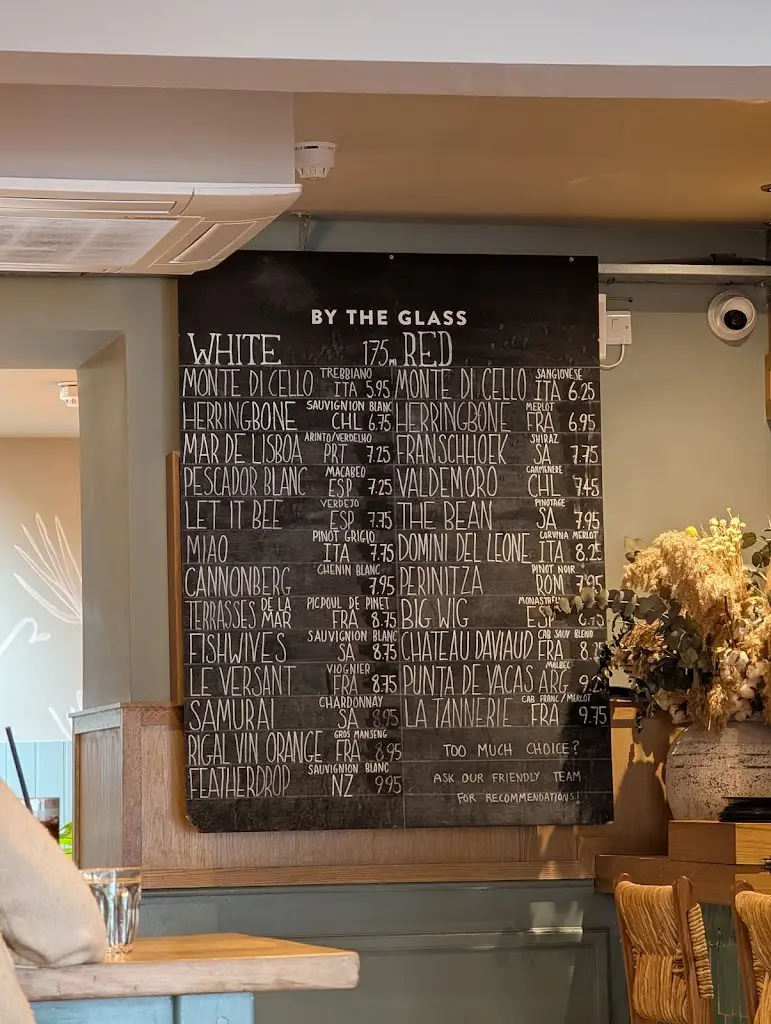 BY THE GLASS
WHITE 175ml
MONTE DI CELLO TREBBIANO ITA 5.95
HERRINGBONE SAUVIGNION BLANC CHL 6.75
MAR DE LISBOA ARINTO/VERDELHO PRT 7.25
PESCADOR BLANC MACABEO ESP 7.25
LET IT BEE VERDEJO ESP 7.75
MIAO PINOT GRIGIO ITA 7.75
CANNONBERG CHENIN BLANC 7.95
TERRASSES DE LA MAR PICPOUL DE PINET FRA 8.75
FISHWIVES SAUVIGNON BLANC SA 8.75
LE VERSANT VIOGNIER FRA 8.75
SAMURAI CHARDONNAY SA 8.95
RIGAL VIN ORANGE GROS MANSENG FRA 8.95
FEATHERDROP SAUVIGNON BLANC NZ 9.95
RED
MONTE DI CELLO SANGIOVESE ITA 6.25
HERRINGBONE MERLOT FRA 6.95
FRANSCHHOEK SHIRAZ SA 7.75
VALDEMORO CARMENERE CHL 7.45
THE BEAN PINOTAGE SA 7.95
DOMINI DEL LEONE CORVINA MERLOT ITA
PERINITZA PINOT NOIR ROM 7.95
BIG WIG ESP
CHATEAU DAVIAUD CAB SAUV BLEND FRA
PUNTA DE VACAS MALBEC ARG
LA TANNERIE CAB FRANC/MERLOT FRA 9.75
TOO MUCH CHOICE?
ASK OUR FRIENDLY TEAM
FOR RECOMMENDATIONS!